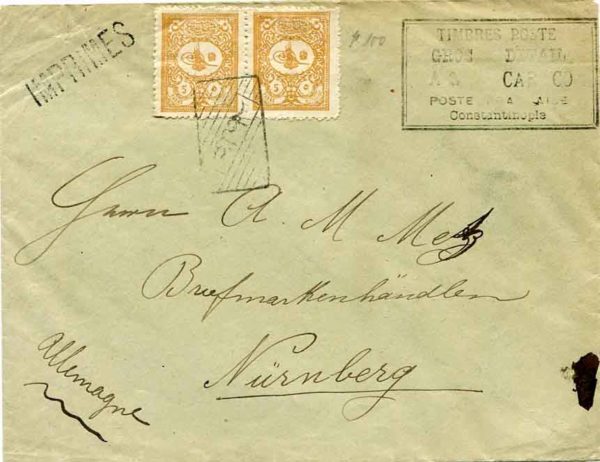 IMPRIMÉS
5 5
№ 100
TIMBRES POSTE
GROS DÉTAIL
A. G. CAR CO
POSTE
Constantinople
Herrn A M Metz
Briefmarkenhändler
Nürnberg
Allemagne